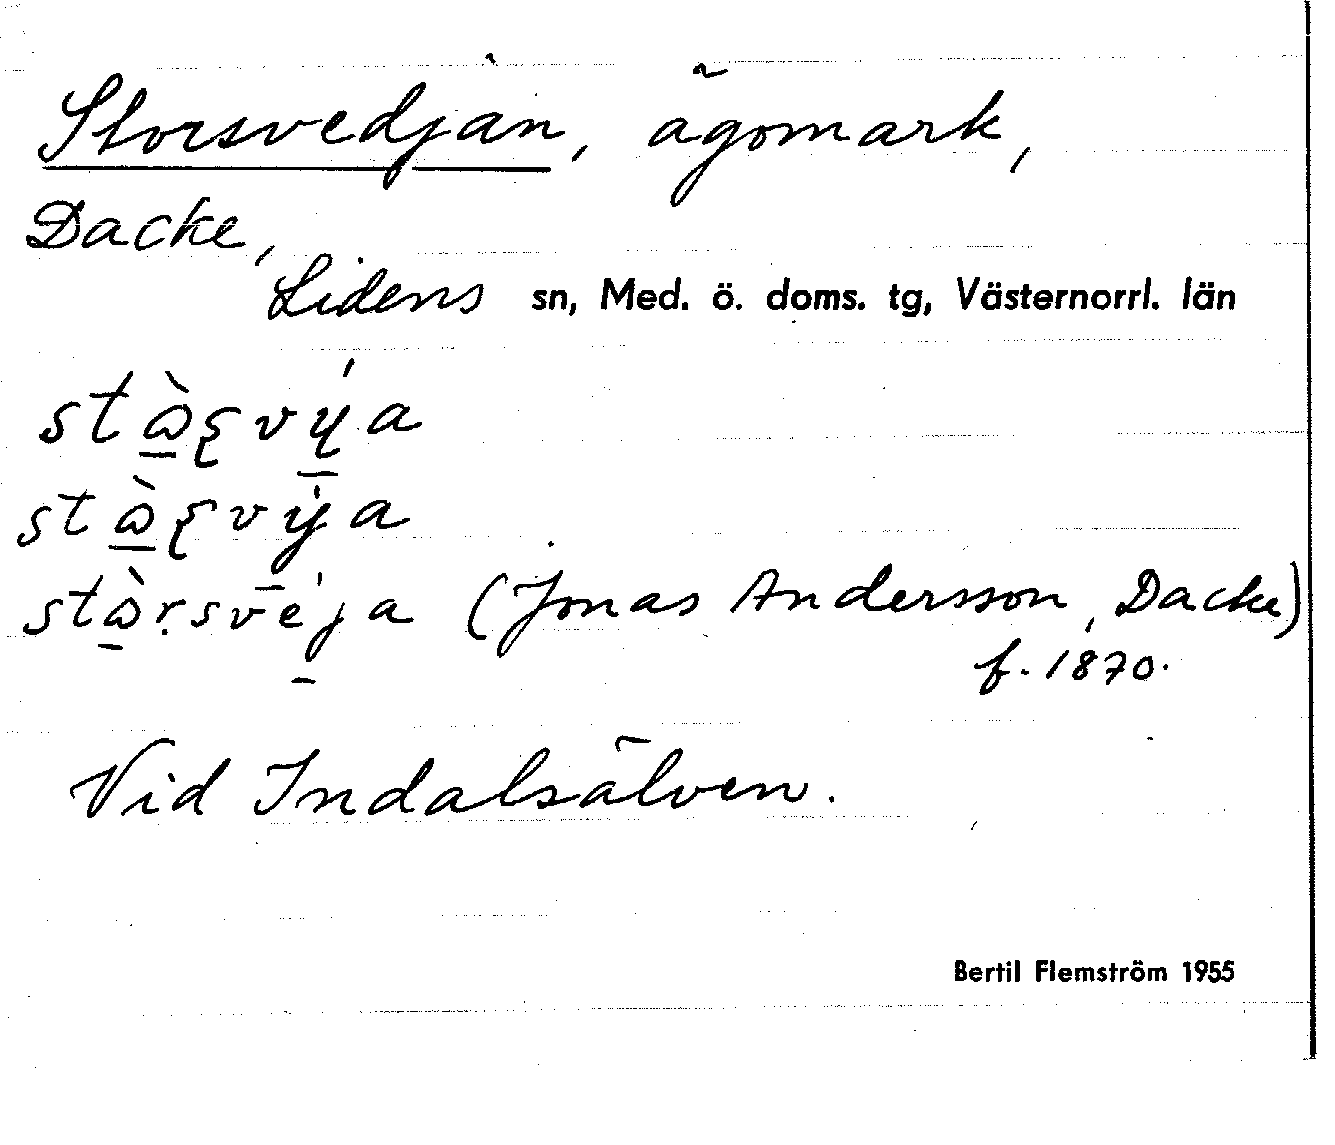 Storsvedjan, ägomark,
Dacke,
Lidens sn, Med. ö. doms. tg, Västernorrl. län
(Jonas Andersson, Dacke)
f. 1870.
Vid Indalsälven.
Bertil Flemström 1955